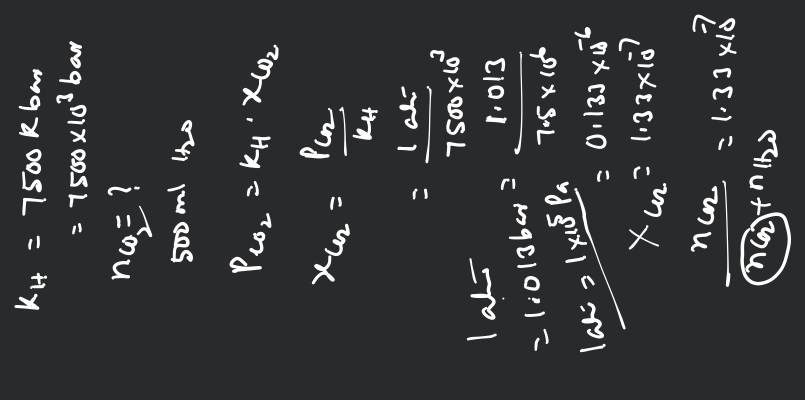 K_H = 7500 K bar
= 7500 × 10³ bar
n_CO₂ = ?
500 ml H₂O
P_CO₂ = K_H · x_CO₂
x_CO₂ = P_CO₂ / K_H
= 1 atm / 7500 × 10³
= 1.013 / 7.5 × 10⁶
1 atm
= 1.013 bar
1 atm = 1 × 10⁵ Pa
= 0.133 × 10⁻⁶
x_CO₂ = 1.33 × 10⁻⁷
n_CO₂ / n_CO₂ + n_H₂O = 1.33 × 10⁻⁷